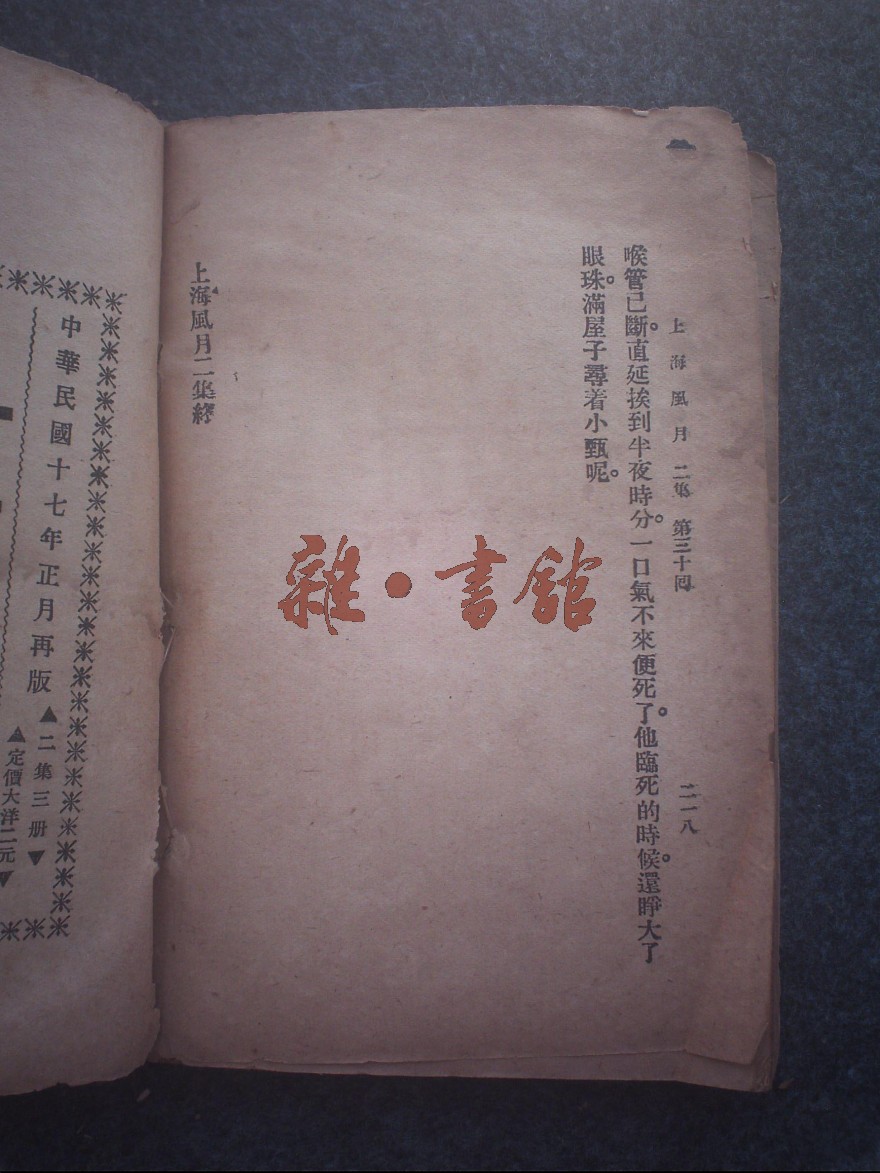 上海風月 二集 第三十回 二一八
喉管已斷。直延挨到半夜時分。一口氣不來便死了。他臨死的時候。還睜大了
眼珠。滿屋子尋着小甄呢。
上海風月二集終
雜•書館
中華民國十七年正月再版
▲二集三册▼
▲定價大洋二元▼